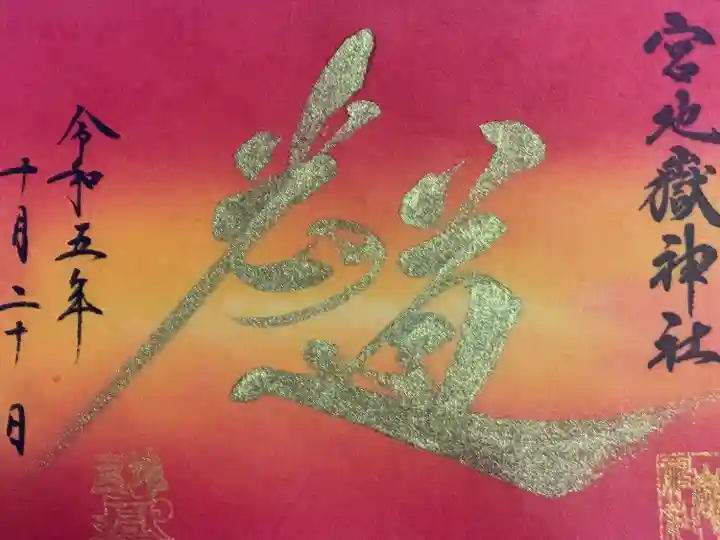 宮地嶽神社
光の道
令和五年
十月二十日